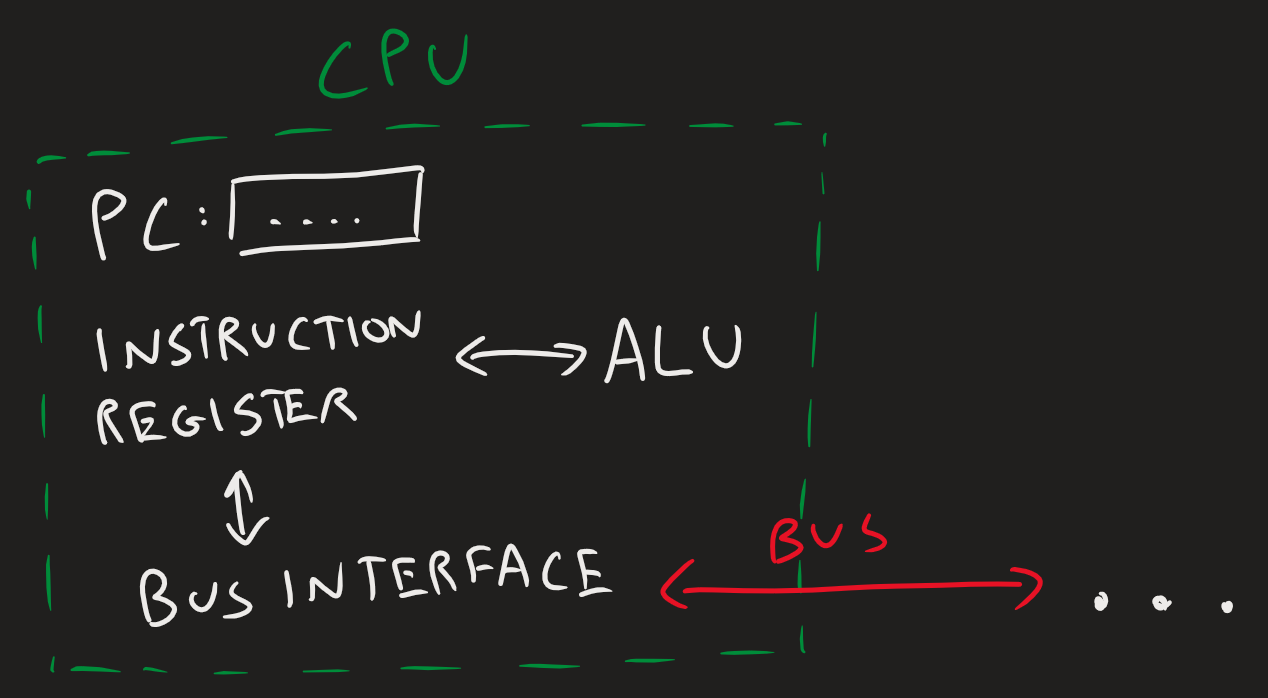 CPU
PC: ....
INSTRUCTION
REGISTER
ALU
BUS INTERFACE
BUS
...